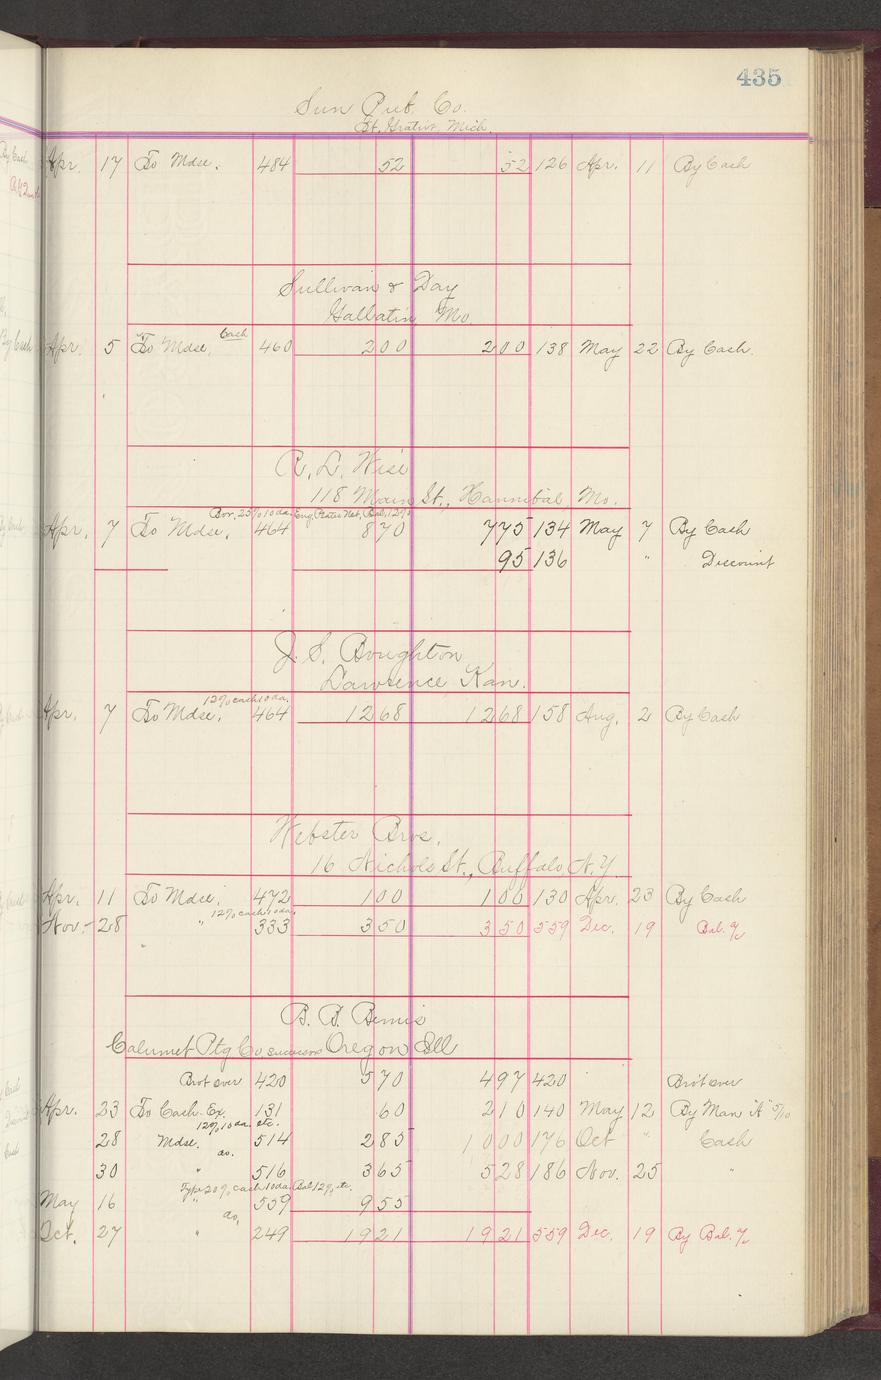 435
Sun Pub. Co.
St. Gratiot, Mich.
Apr. 17 To Mdse. 484 52 52 126 Apr. 11 By Cash
Sullivan & Day
Gallatin Mo
Cash
Apr. 5 To Mdse. 460 200 200 138 May 22 By Cash.
R. L. Wise
118 Main St., Hannibal, Mo.
Bor. 25% 10 da. Eng. Plates Net, Bal. 12%
Apr. 7 To Mdse. 464 870 775 134 May 7 By Cash
95 136 " Discount
J. S. Boughton
Lawrence Kan.
12% cash 10 da.
Apr. 7 To Mdse. 464 1268 1268 158 Aug. 2 By Cash
Webster Bros.
16 Nichols St., Buffalo N.Y.
Apr. 11 To Mdse. 472 100 100 130 Apr. 23 By Cash
12% cash 10 da.
Nov. 28 " 333 350 350 559 Dec. 19 Bal. a/c
B. B. Bemis
Calumet Ptg Co successors Oregon Ill
Brot over 420 570 497 420 Brot over
Apr. 23 To Cash Ex. 131 60 210 140 May 12 By Man "A" 5/10
12% 10 da. etc.
28 Mdse. 514 285 1000 176 Oct " Cash
do.
30 " 516 365 528 186 Nov. 25 "
Type 20% cash 10 da. Bal 12%, etc.
May 16 " 559 955
do.
Oct. 27 " 249 1921 1921 559 Dec. 19 By Bal. a/c